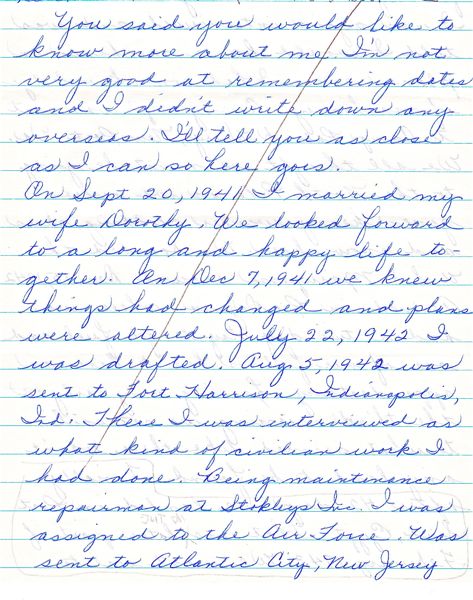 You said you would like to
know more about me. I'm not
very good at remembering dates
and I didn't write down any
overseas. I'll tell you as close
as I can so here goes.
On Sept 20, 1941 I married my
wife Dorothy. We looked forward
to a long and happy life to-
gether. On Dec 7, 1941 we knew
things had changed and plans
were altered. July 22, 1942 I
was drafted. Aug 5, 1942 was
sent to Fort Harrison, Indianapolis,
Ind. There I was interviewed as
what kind of civilian work I
had done. Being maintenance
repairman at Stokleys Inc. I was
assigned to the Air Force. Was
sent to Atlantic City, New Jersey